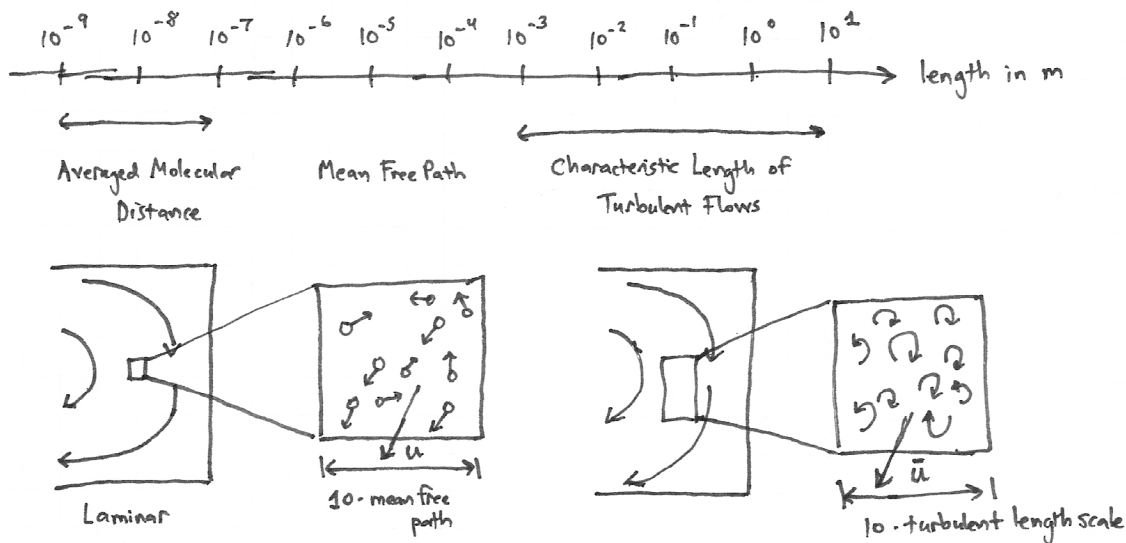 10⁻⁹ 10⁻⁸ 10⁻⁷ 10⁻⁶ 10⁻⁵ 10⁻⁴ 10⁻³ 10⁻² 10⁻¹ 10⁰ 10¹
length in m
Averaged Molecular
Distance
Mean Free Path
Characteristic Length of
Turbulent Flows
u
10 · mean free
path
Laminar
ū
10 · turbulent length scale